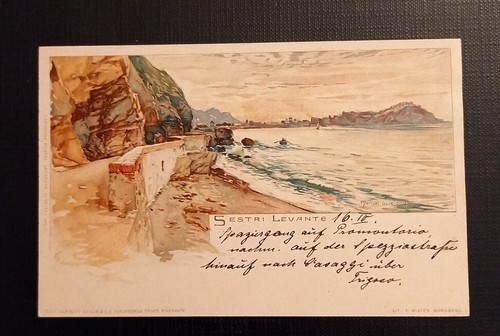 SESTRI LEVANTE 16. IV.
Spaziergang auf Promontorio
nachm. auf der Spezziastraße
hinauf nach Casaggi über
Trigoso.